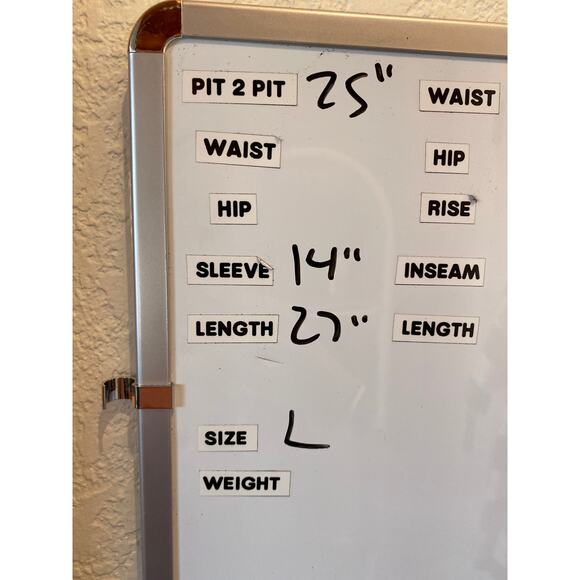 PIT 2 PIT 25" WAIST
WAIST HIP
HIP RISE
SLEEVE 14" INSEAM
LENGTH 27" LENGTH
SIZE L
WEIGHT